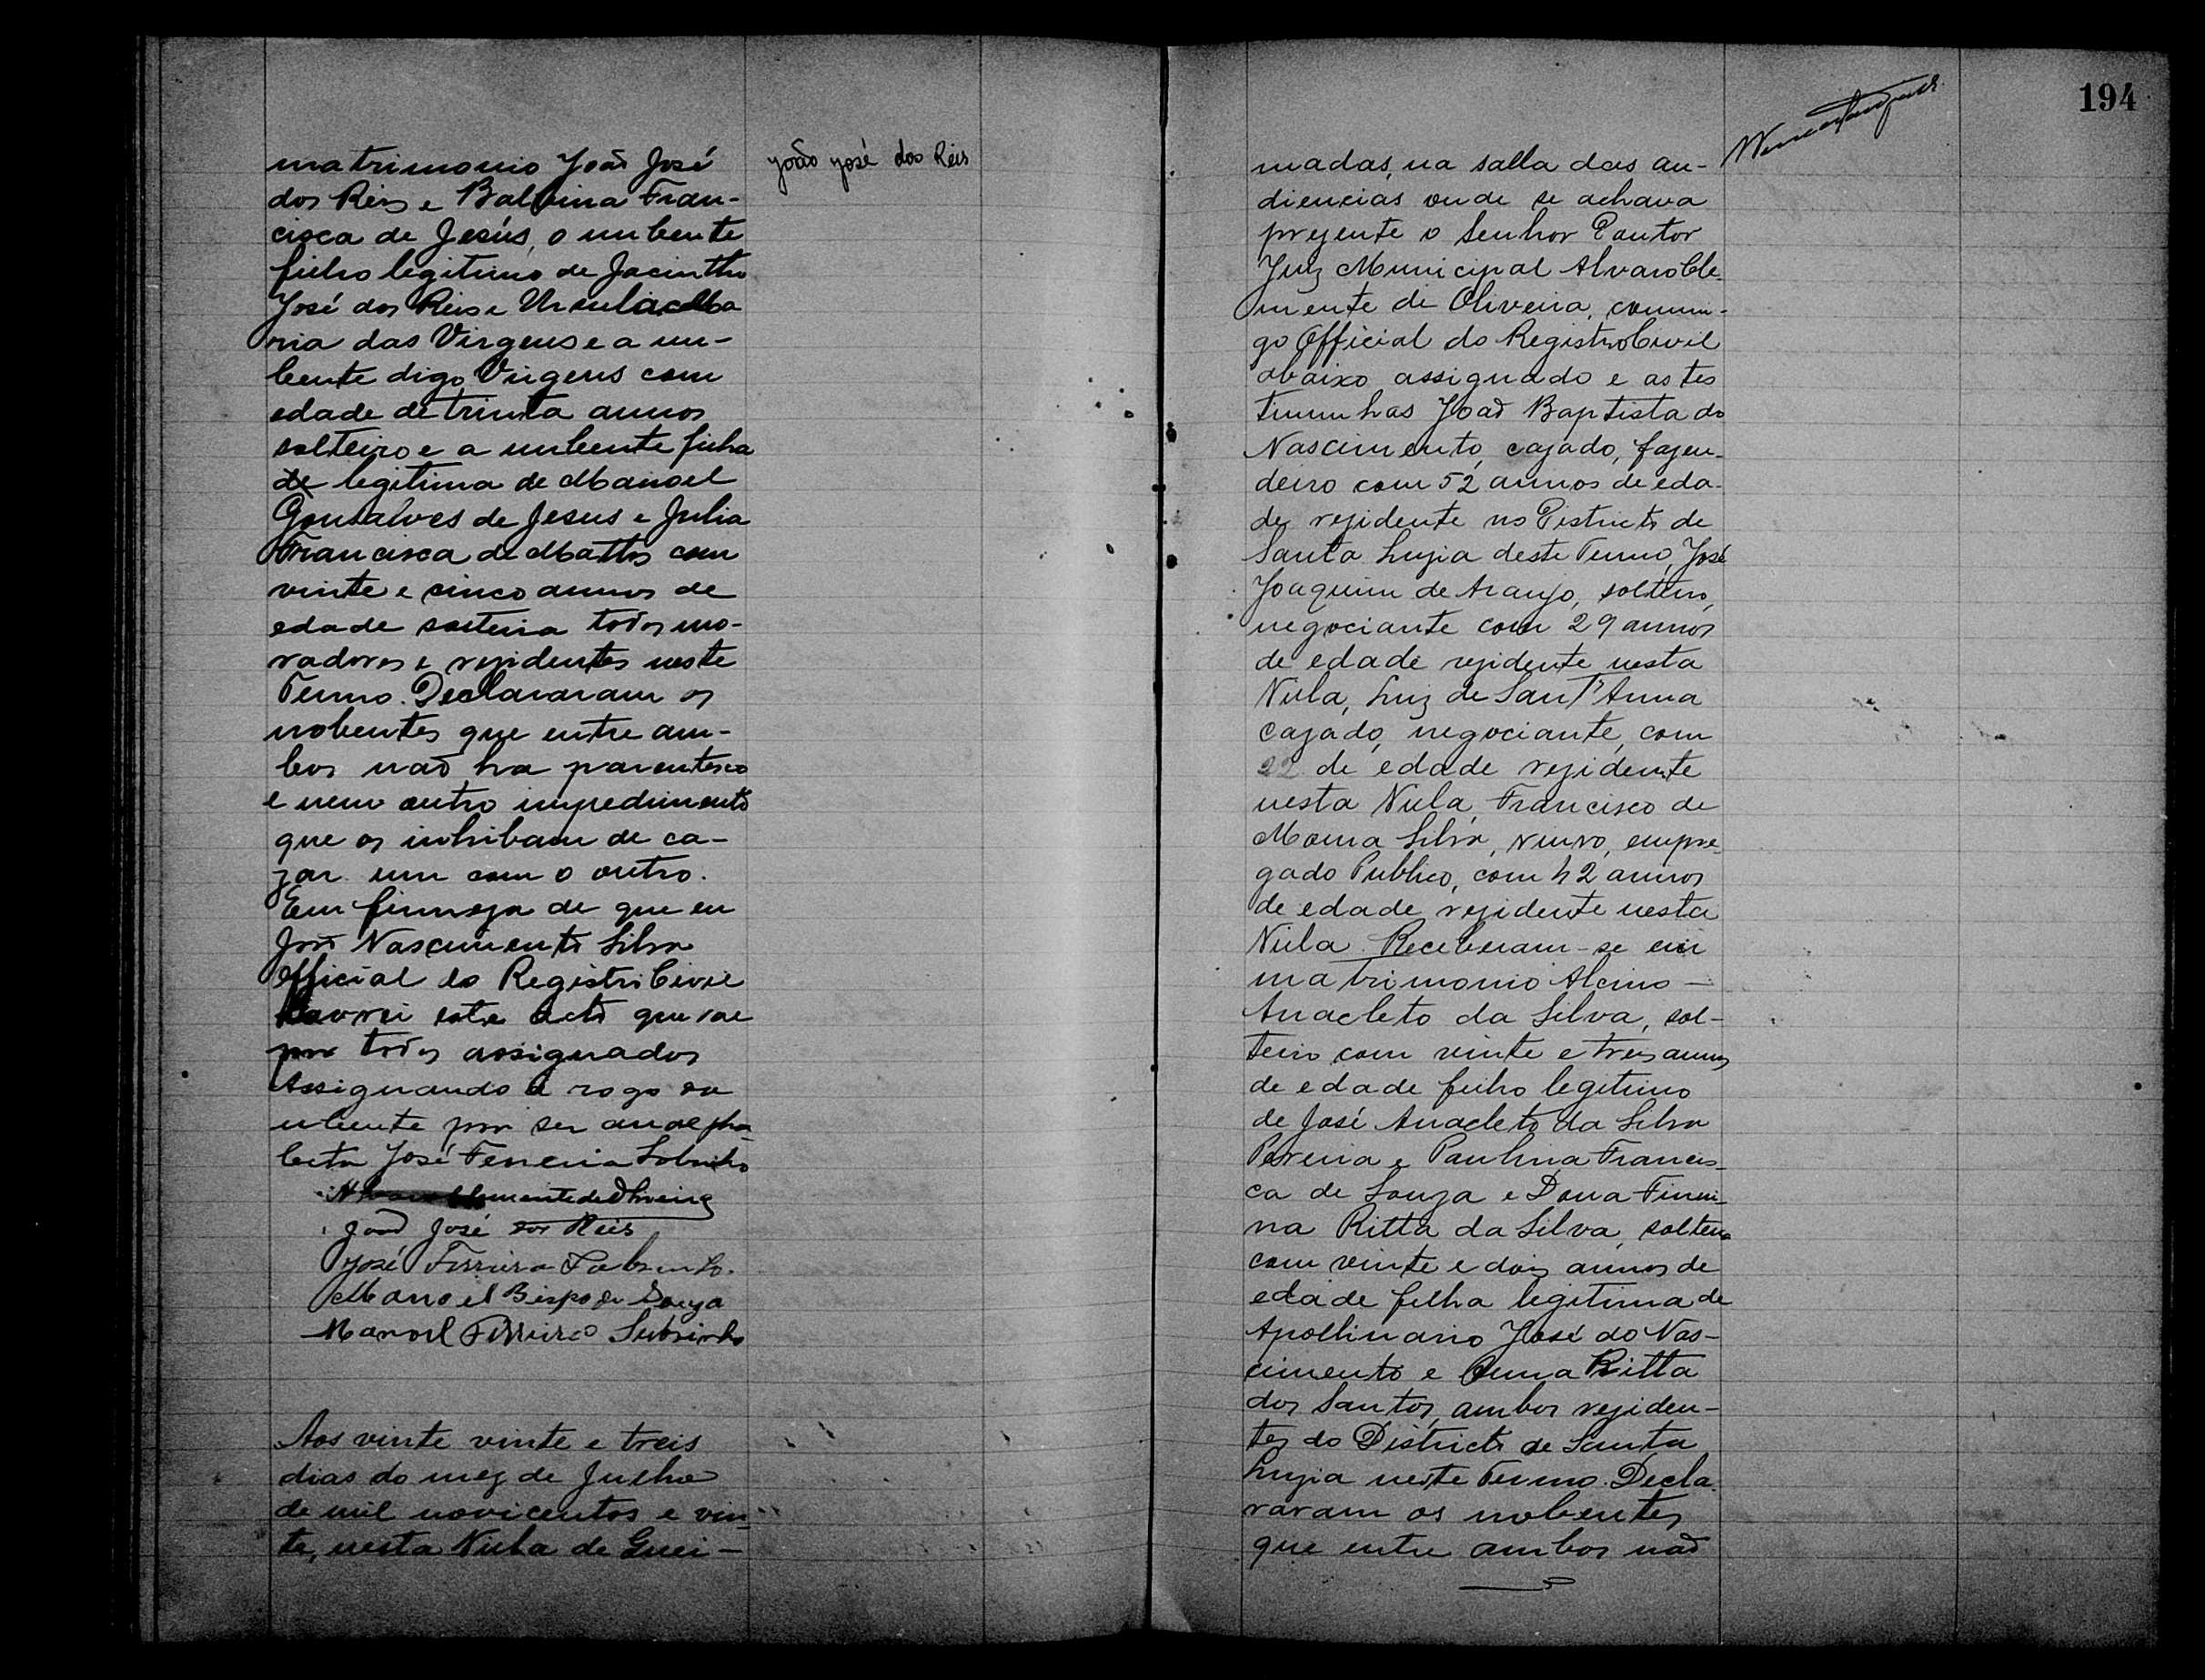 matrimonio João José
dos Reis e Balbina Fran-
cisca de Jesús, o nubente
filho legitimo de Jacintho
José dos Reis e Ursula Ma
ria das Virgens e a nu-
bente digo Virgens com
edade de trinta annos
solteiro e a nubente filha
de legitima de Manoel
Gonsalves de Jesus e Julia
Francisca de Mattos com
vinte e cinco annos de
edade solteira todos mo-
radores e rezidentes neste
Termo. Declararam os
nobentes que entre am-
bos não ha parentesco
e nem outro impedimento
que os inhibam de ca-
zar um com o outro.
Em firmeza de que eu
José Nascimento Silva
official do Registro Civil
lavrei este acto que vae
por todos assignados
Assignando a rogo da
nubente por ser analpha
beta José Ferreira Sobrinho
Alvaro Clemente de Oliveira
João José dos Reis
José Ferreira Sobrinho.
Manoel Bispo de Souza
Manoel Ferreira Subrinho
Aos vinte vinte e treis
dias do mez de Julho
de mil novicentos e vin-
te, nesta Villa de Quei-
joão josé dos Reis
194
madas, na salla das au-
diencias onde se achava
prezente o Senhor Doutor
Juiz Municipal Alvaro Cle-
mente de Oliveira, commi-
go Official do Registro Civil
abaixo assignado e as tes
timunhas João Baptista do
Nascimento, cazado, fazen-
deiro com 52 annos de eda-
de, rezidente no Districto de
Santa Luzia deste Termo, José
Joaquim de Araujo, solteiro,
negociante com 29 annos
de edade rezidente nesta
Villa, Luiz de Sant'Anna
cazado, negociante, com
22 de edade rezidente
nesta Villa, Francisco de
Moura Silva, viuvo, empre-
gado Publico, com 42 annos
de edade rezidente nesta
Villa. Receberam-se em
matrimonio Alcino -
Anacleto da Silva, sol-
teiro com vinte e treis annos
de edade filho legitimo
de José Anacleto da Silva
Pereira e Paulina Francis-
ca de Souza e Dona Firmi-
na Ritta da Silva, solteira
com vinte e dois annos de
edade filha legitima de
Apollinario José do Nas-
cimento e Anna Ritta
dos Santos, ambos reziden-
tes do Districto de Santa
Luzia neste Termo. Decla-
raram os nobentes
que entre ambos não